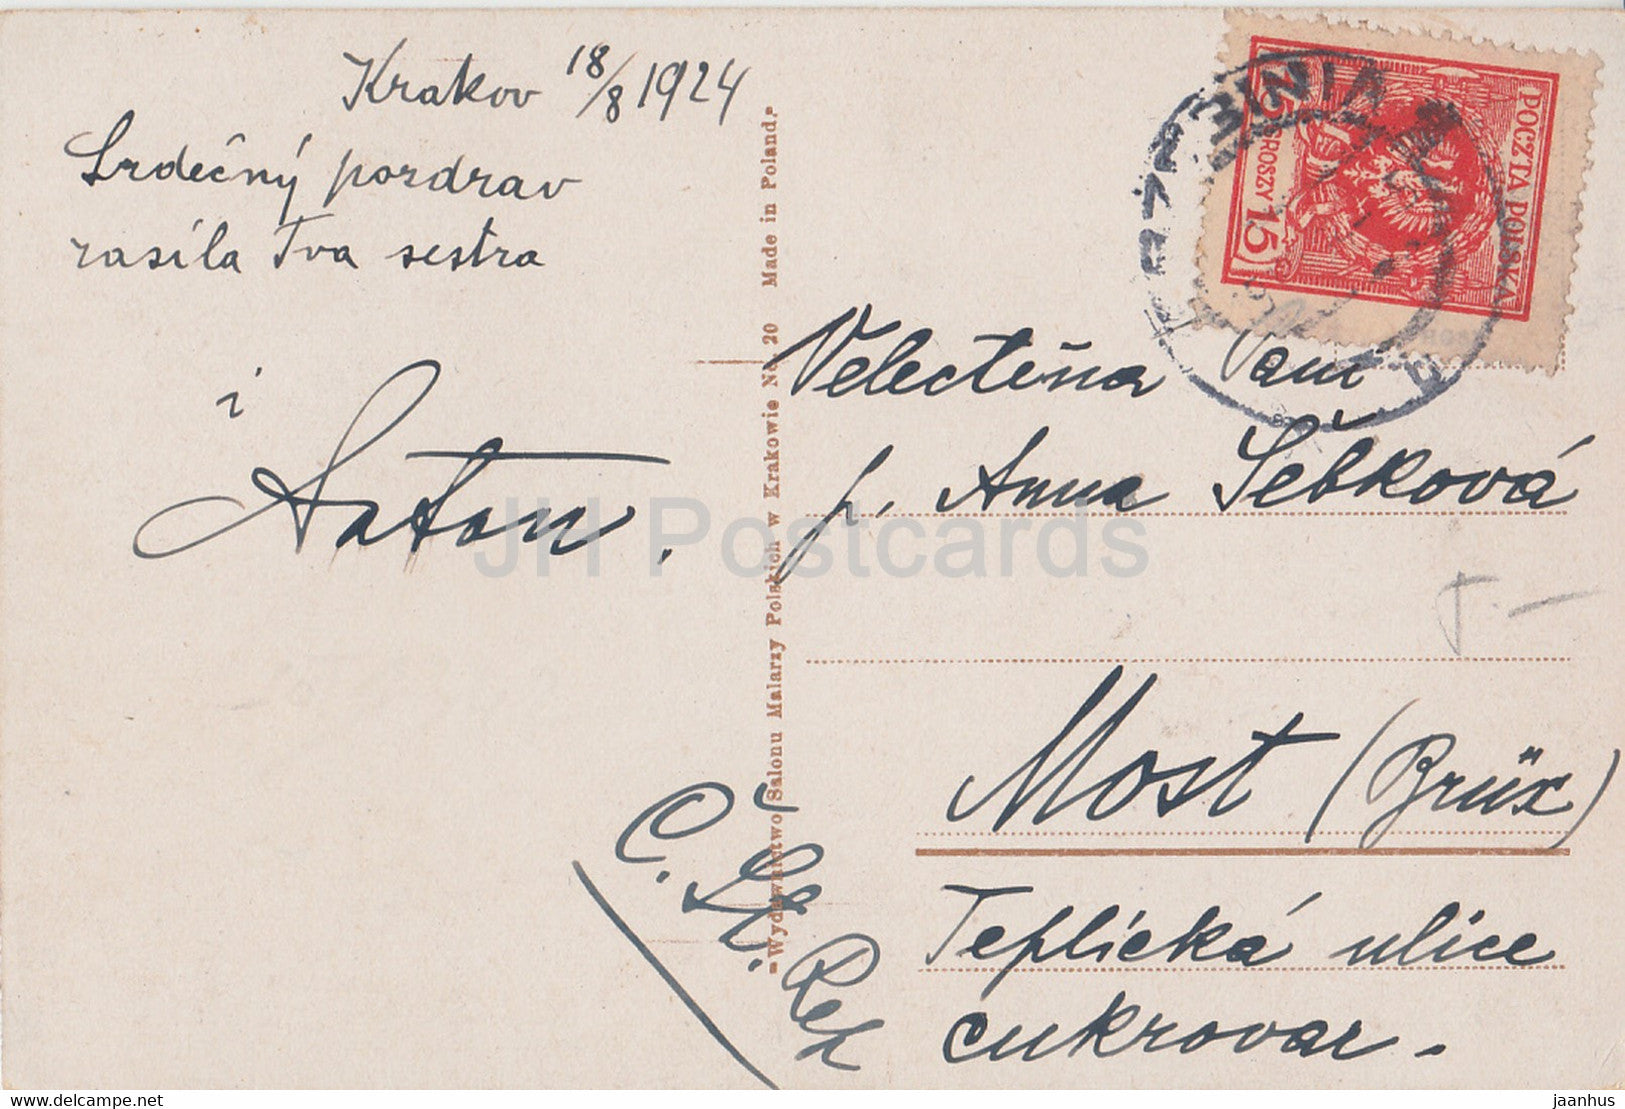 Krakov 18/8 1924
Srdečný pozdrav
zasílá Tvá sestra
i
Anton.
Velectěná Paní
p. Anna Šebková
Most (Brüx)
Teplická ulice
cukrovar.
Č. Sl. Rep.
Wydawnictwo Salonu Malarzy Polskich w Krakowie No. 20 Made in Poland.
POCZTA POLSKA
15 GROSZY 15
TRZEBINIA
JH Postcards
delcampe.net
jaanhus